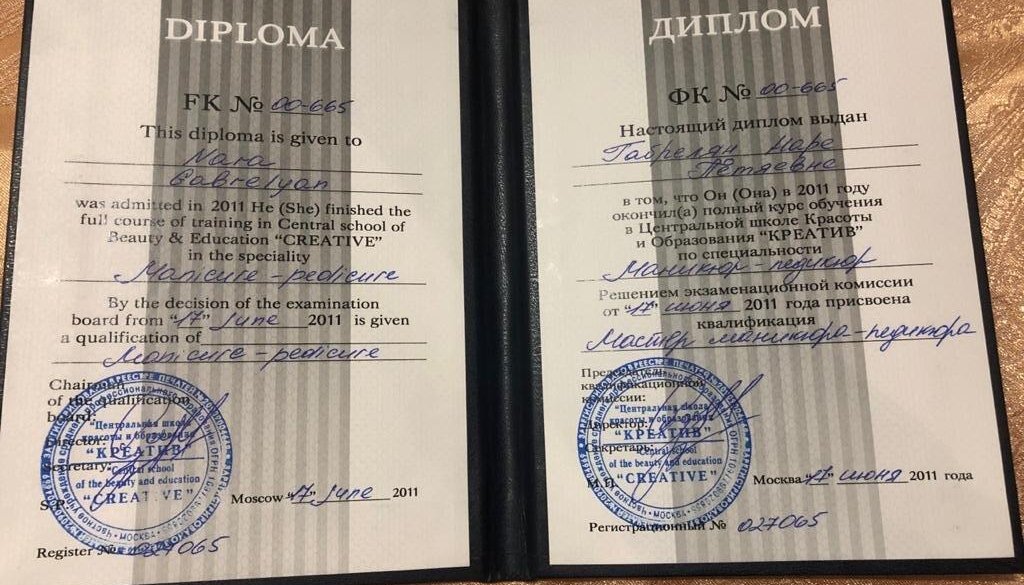 DIPLOMA
FK № 00-665
This diploma is given to
Nara
Gabrelyan
was admitted in 2011 He (She) finished the
full course of training in Central school of
Beauty & Education "CREATIVE"
in the speciality
Manicure-pedicure
By the decision of the examination
board from "17" June 2011 is given
a qualification of
Manicure-pedicure
Chairman
of the qualification
board:
Director:
Secretary:
S.P.
Moscow "17" June 2011
Register № 027065
"Центральная школа
красоты и образования
"КРЕАТИВ"
Central school
of the beauty and education
"CREATIVE"
МОСКВА
ДИПЛОМ
ФК № 00-665
Настоящий диплом выдан
Габрелян Наре
Петяевне
в том, что Он (Она) в 2011 году
окончил(а) полный курс обучения
в Центральной школе Красоты
и Образования "КРЕАТИВ"
по специальности
Маникюр-педикюр
Решением экзаменационной комиссии
от "17" июня 2011 года присвоена
квалификация
Мастер маникюра-педикюра
Председатель
квалификационной
комиссии:
Директор:
Секретарь:
М.П.
Москва "17" июня 2011 года
Регистрационный № 027065
"Центральная школа
красоты и образования
"КРЕАТИВ"
Central school
of the beauty and education
"CREATIVE"
МОСКВА